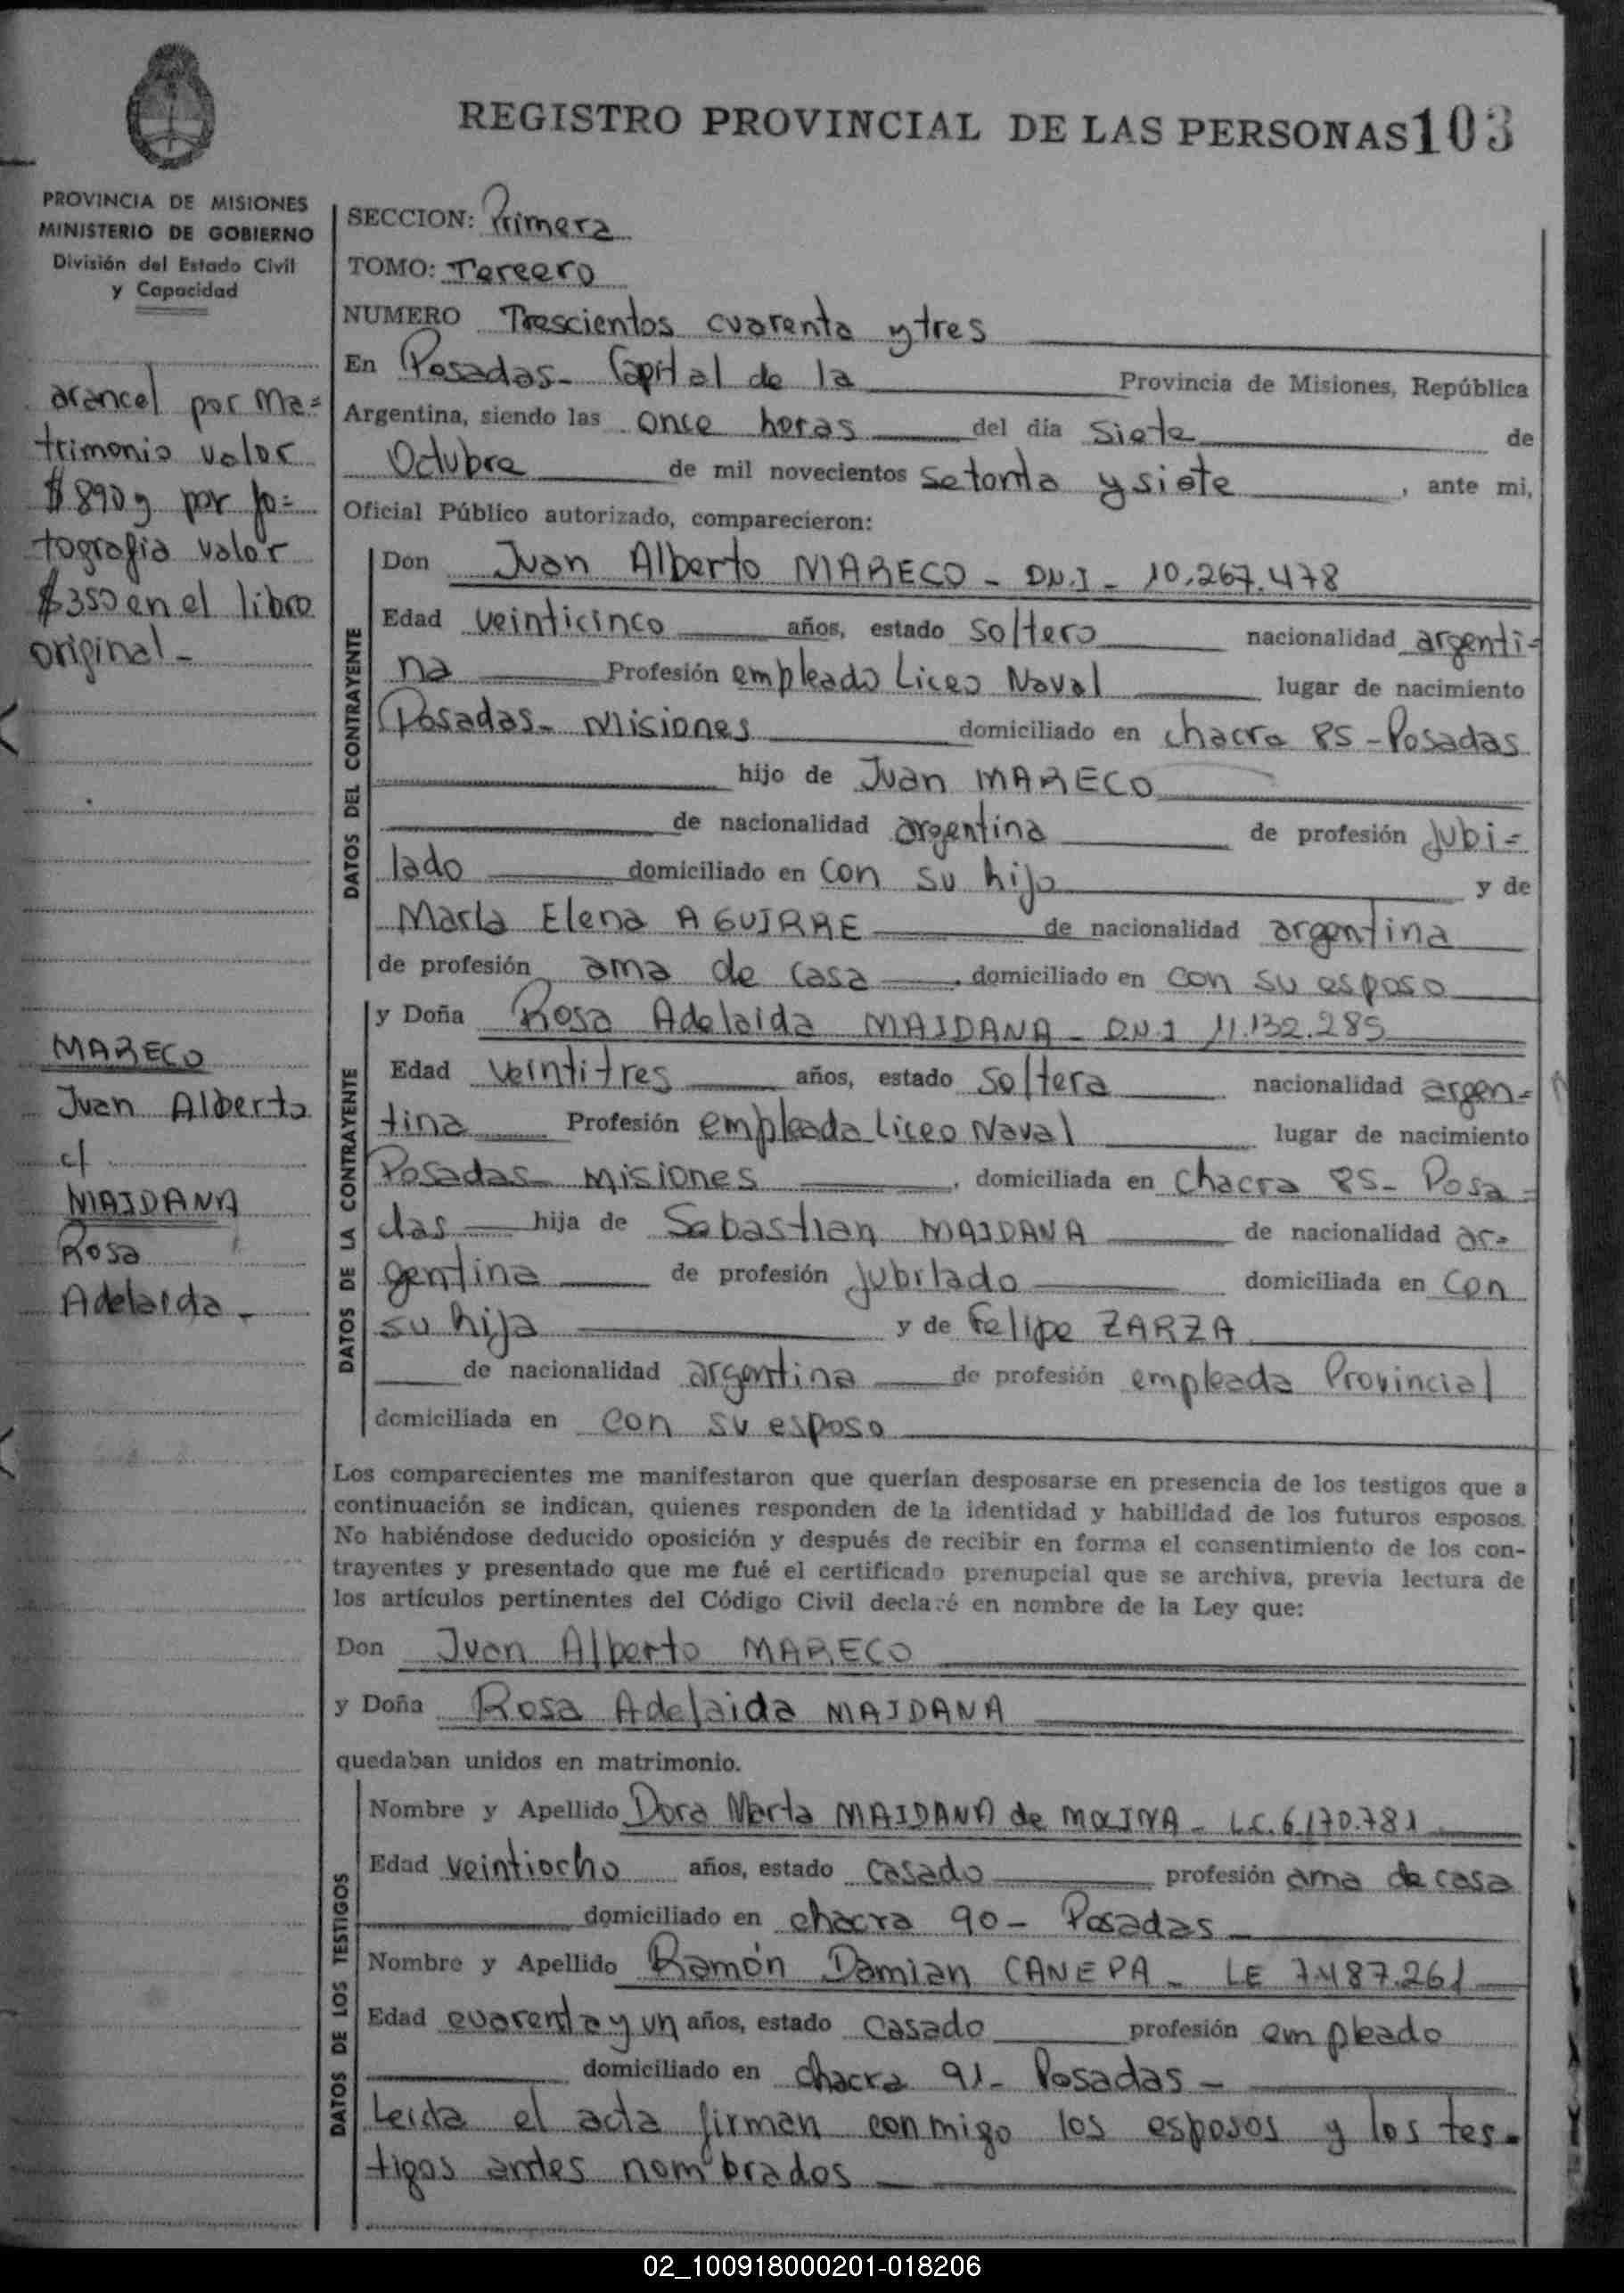 REGISTRO PROVINCIAL DE LAS PERSONAS 103
PROVINCIA DE MISIONES
MINISTERIO DE GOBIERNO
División del Estado Civil
y Capacidad
arancel por Ma=
trimonio valor
$ 890 y por fo=
tografia valor
$ 350 en el libro
original -
MARECO
Juan Alberto
c/
MAIDANA
Rosa
Adelaida -
SECCION: Primera
TOMO: Tercero
NUMERO Trescientos cuarenta y tres
En Posadas - Capital de la Provincia de Misiones, República
Argentina, siendo las once horas del día siete de
Octubre de mil novecientos setenta y siete, ante mi,
Oficial Público autorizado, comparecieron:
DATOS DEL CONTRAYENTE
Don Juan Alberto MARECO - D.N.I - 10.267.478
Edad veinticinco años, estado soltero nacionalidad argenti-
na Profesión empleado Liceo Naval lugar de nacimiento
Posadas - Misiones domiciliado en chacra 85 - Posadas
hijo de Juan MARECO
de nacionalidad argentina de profesión jubi=
lado domiciliado en con su hijo y de
María Elena AGUIRRE de nacionalidad argentina
de profesión ama de casa, domiciliado en con su esposo
DATOS DE LA CONTRAYENTE
y Doña Rosa Adelaida MAIDANA - D.N.I 11.132.285
Edad veintitres años, estado soltera nacionalidad argen=
tina Profesión empleada Liceo Naval lugar de nacimiento
Posadas - Misiones, domiciliada en chacra 85 - Posa=
das hija de Sebastian MAIDANA de nacionalidad ar=
gentina de profesión jubilado domiciliada en con
su hija y de Felipe ZARZA
de nacionalidad argentina de profesión empleada Provincial
domiciliada en con su esposo
Los comparecientes me manifestaron que querían desposarse en presencia de los testigos que a
continuación se indican, quienes responden de la identidad y habilidad de los futuros esposos.
No habiéndose deducido oposición y después de recibir en forma el consentimiento de los con-
trayentes y presentado que me fué el certificado prenupcial que se archiva, previa lectura de
los artículos pertinentes del Código Civil declaré en nombre de la Ley que:
Don Juan Alberto MARECO
y Doña Rosa Adelaida MAIDANA
quedaban unidos en matrimonio.
DATOS DE LOS TESTIGOS
Nombre y Apellido Dora Marta MAIDANA de MOLINA - L.C. 6.170.781
Edad veintiocho años, estado casado profesión ama de casa
domiciliado en chacra 90 - Posadas -
Nombre y Apellido Ramón Damian CANEPA - LE 7.487.261
Edad cuarenta y un años, estado casado profesión empleado
domiciliado en chacra 91 - Posadas -
Leida el acta firman conmigo los esposos y los tes-
tigos antes nombrados
02_100918000201-018206